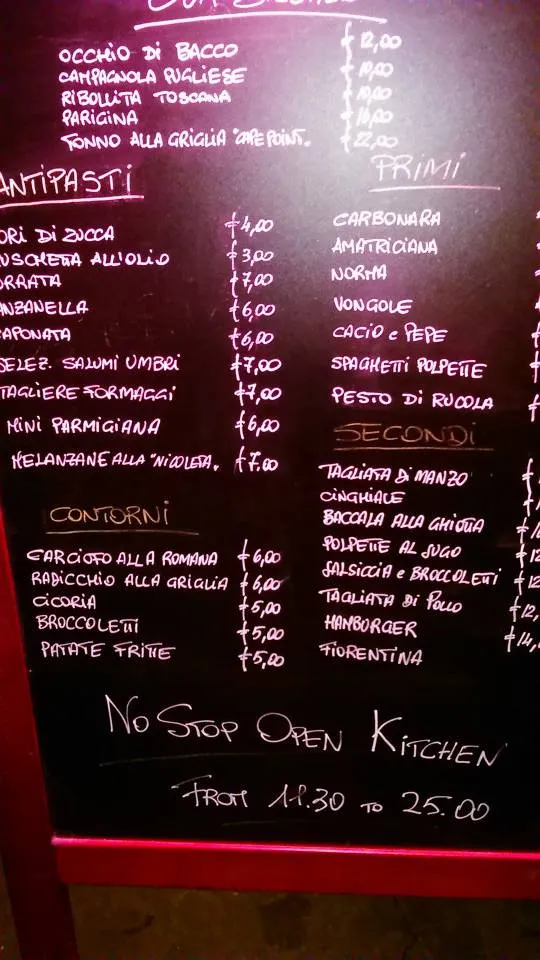 OCCHIO DI BACCO € 12,00
CAMPAGNOLA PUGLIESE € 10,00
RIBOLLITA TOSCANA € 10,00
PARIGINA € 16,00
TONNO ALLA GRIGLIA "CAPE POINT. € 22,00
ANTIPASTI
ORI DI ZUCCA € 4,00
USCHETTA ALL'OLIO € 3,00
RRATA € 7,00
NZANELLA € 6,00
APONATA € 6,00
SELEZ. SALUMI UMBRI € 7,00
TAGLIERE FORMAGGI € 7,00
MINI PARMIGIANA € 6,00
MELANZANE ALLA "NICOLETA. € 7.00
CONTORNI
CARCIOFO ALLA ROMANA € 6,00
RADICCHIO ALLA GRIGLIA € 6,00
CICORIA € 5,00
BROCCOLETTI € 5,00
PATATE FRITTE € 5,00
PRIMI
CARBONARA
AMATRICIANA
NORMA
VONGOLE
CACIO e PEPE
SPAGHETTI POLPETTE
PESTO DI RUCOLA
SECONDI
TAGLIATA DI MANZO
CINGHIALE
BACCALA ALLA GHIOTTA
POLPETTE AL SUGO € 12
SALSICCIA e BROCCOLETTI € 12
TAGLIATA DI POLLO € 12,
HAMBURGER € 14,
FIORENTINA
NO STOP OPEN KITCHEN
FROM 11.30 TO 25.00